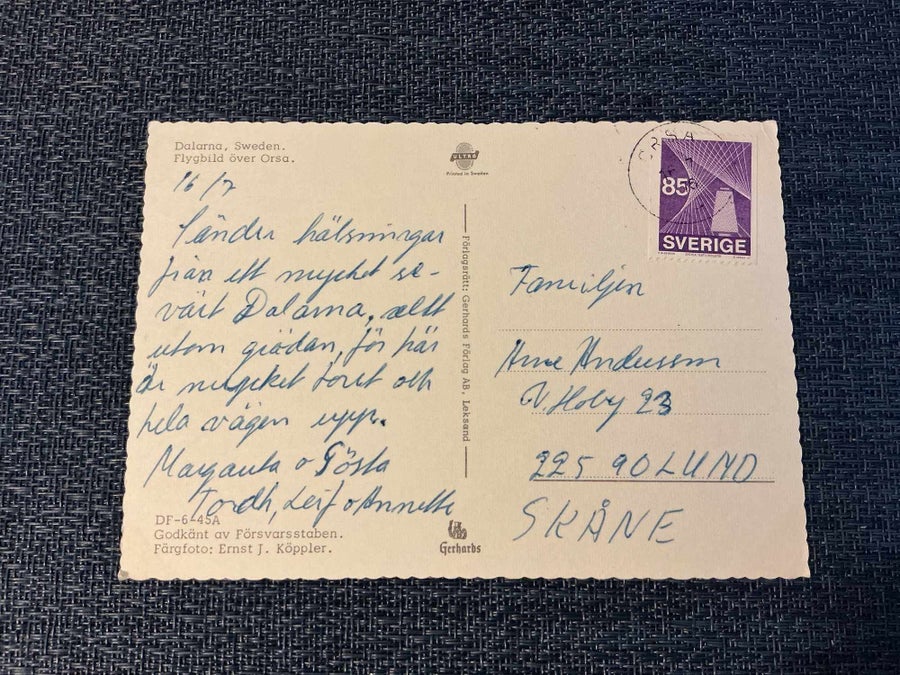 Dalarna, Sweden.
Flygbild över Orsa.
16/7
Sänder hälsningar
från ett mycket se-
värt Dalarna, allt
utom grödan, för här
är mycket torrt och
hela vägen upp.
Margareta o Gösta
Tordh, Leif o Annette
DF-6-45A
Godkänt av Försvarsstaben.
Färgfoto: Ernst J. Köppler.
ULTRA
Printed in Sweden
Förlagsrätt: Gerhards Förlag AB, Leksand
Gerhards
ORSA
85
SVERIGE
Familjen
Arne Andersson
V. Hoby 23
225 90 LUND
SKÅNE